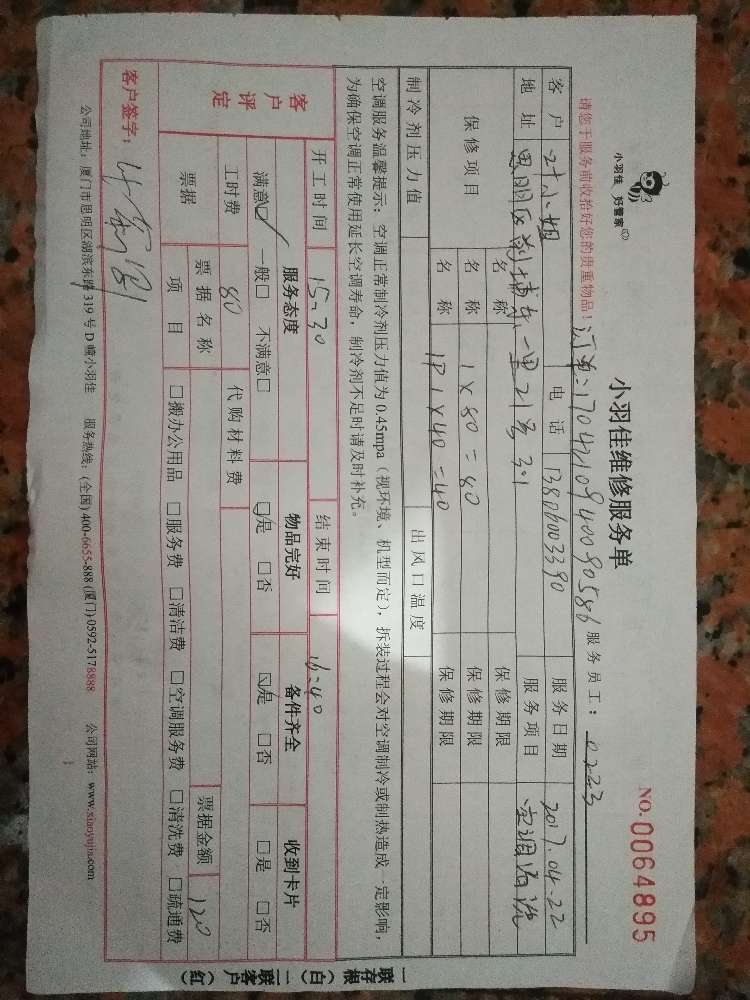 小羽佳 好管家
小羽佳维修服务单
NO.0064895
请您于服务前收拾好您的贵重物品！
订单：1704210940090586
服务员工：0223
客户 叶小姐 电话 13806003390 服务日期 2017.04.22
地址 思明区 东一里21号301 服务项目 空调清洗
保修项目 名称 保修期限
名称 1×80=80 保修期限
名称 1P 1×40=40 保修期限
制冷剂压力值 出风口温度
空调服务温馨提示：空调正常制冷剂压力值为0.45mpa（视环境、机型而定），拆装过程会对空调制冷或制热造成一定影响，
为确保空调正常使用延长空调寿命，制冷剂不足时请及时补充。
开工时间 15:30 结束时间 16:40
客户评定 服务态度 物品完好 备件齐全 收到卡片
满意☑ 一般□ 不满意□ ☑是 □否 ☑是 □否 □是 □否
工时费 80 代购材料费
票据 票据名称 票据金额 120
项目 □搬办公用品 □服务费 □清洁费 □空调服务费 □清洗费 □疏通费
客户签字：
公司地址：厦门市思明区湖滨东路319号D幢小羽佳 服务热线：(全国)400-6655-888(厦门)0592-5178888 公司网站：www.xiaoyujia.com
一联存根（白）二联客户（红）